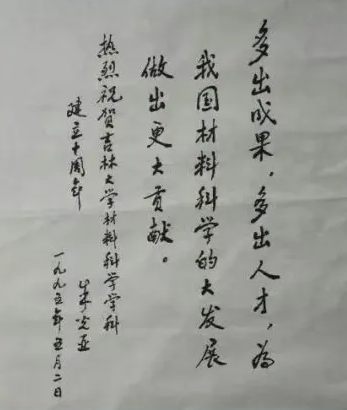 多出成果，多出人才，为
我国材料科学的大发展
做出更大贡献。
热烈祝贺吉林大学材料科学学科
建立十周年
朱光亚
一九九五年五月二日